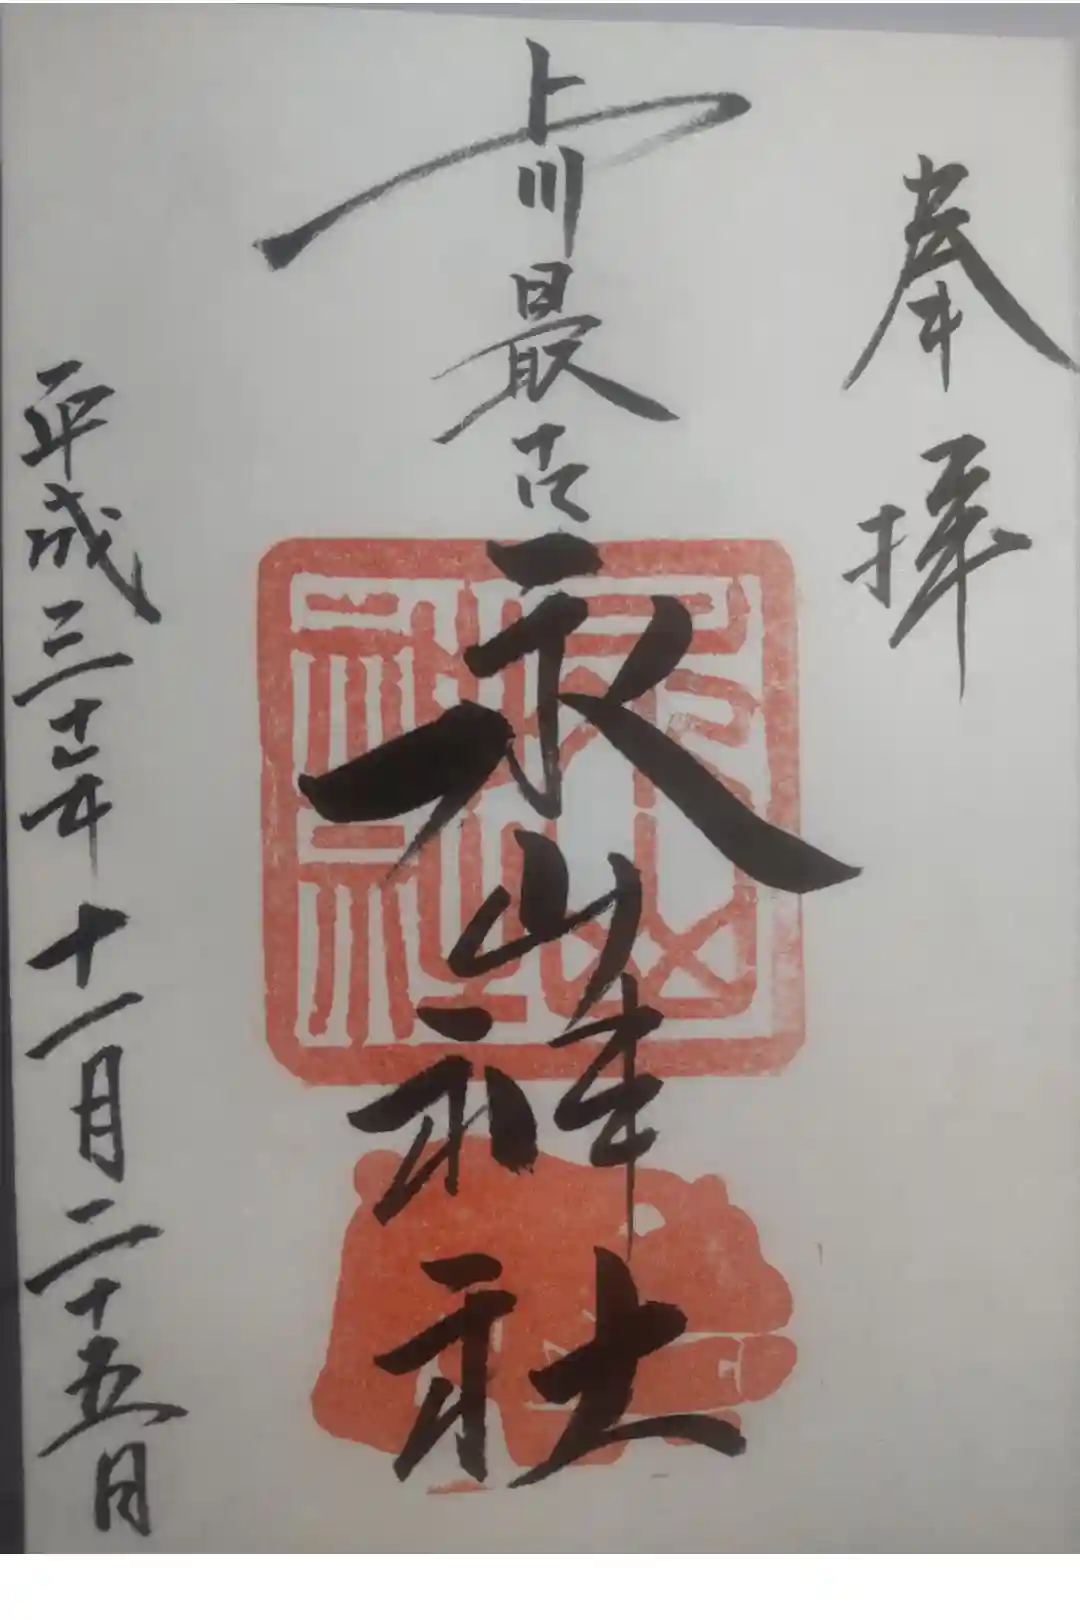 奉拝
上川最古
永山神社
永山神社
平成三十年十一月二十五日